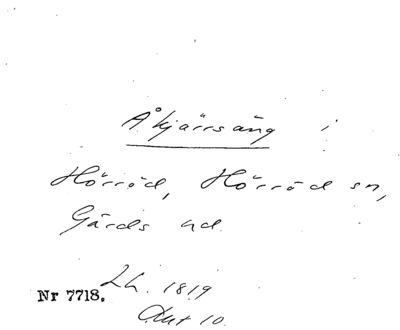 Åkjärrsäng i
Hörröd, Hörröd sn,
Gärds hd.
Lh. 1819
Nr 7718.
Akt 10.